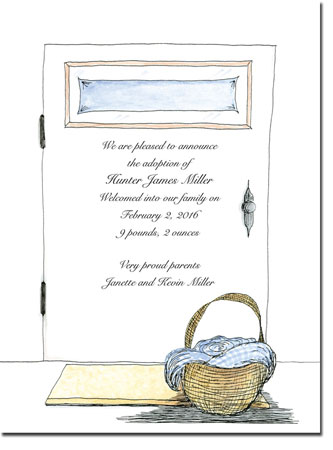 We are pleased to announce
the adoption of
Hunter James Miller
Welcomed into our family on
February 2, 2016
9 pounds, 2 ounces
Very proud parents
Janette and Kevin Miller